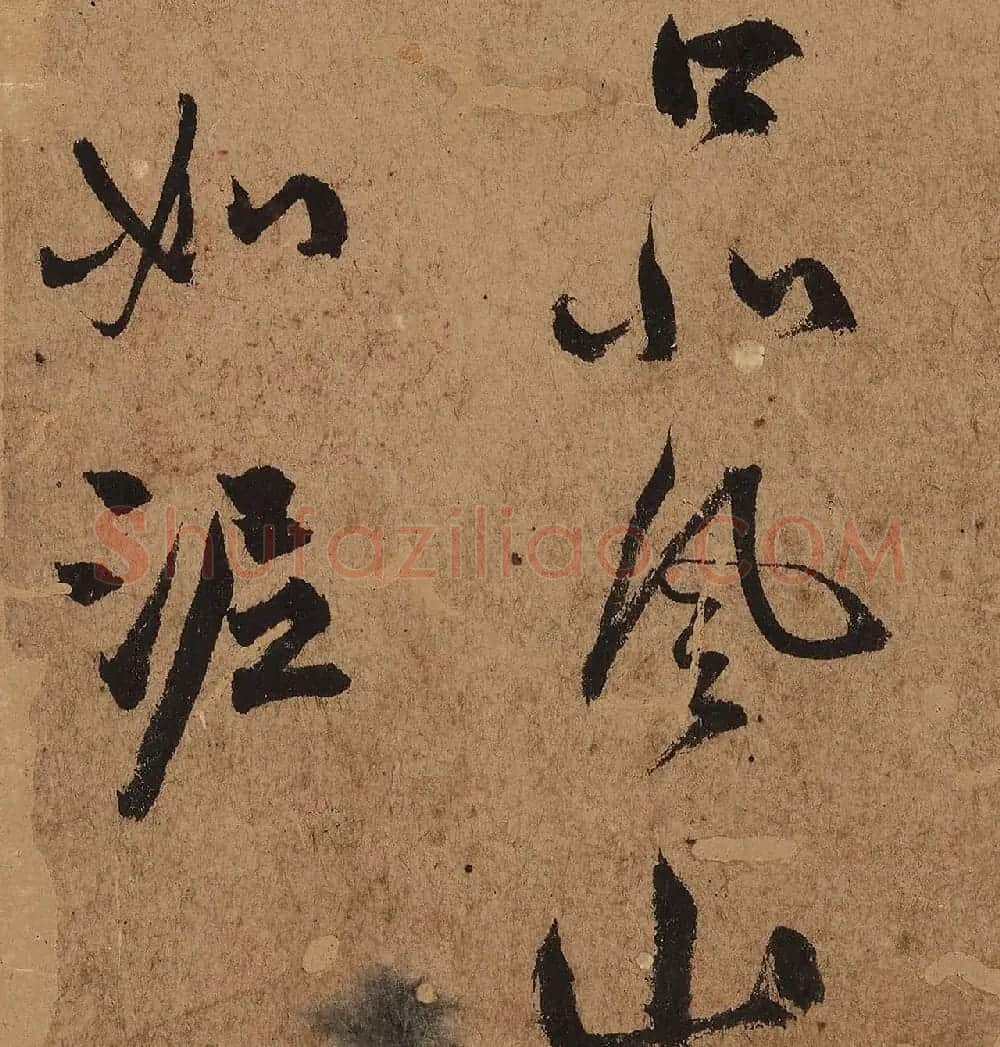 品風山
如泥
Shufaziliao.COM